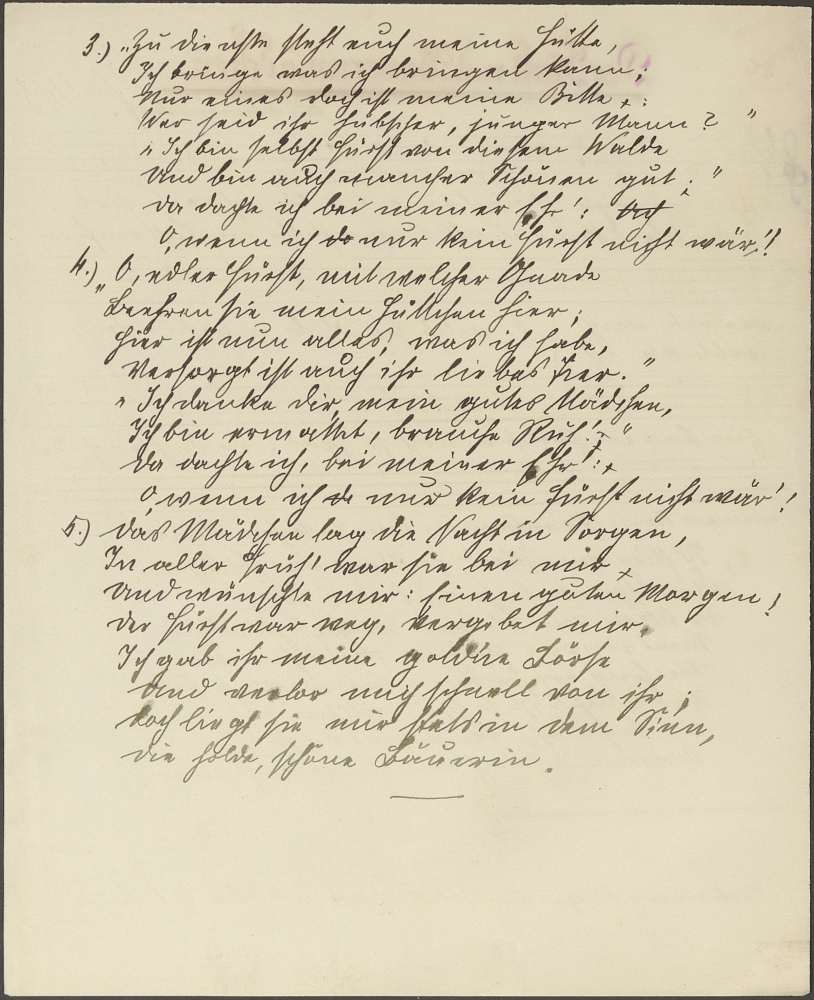 3.) „Zu diensten steht euch meine Hütte,
Ich bringe was ich bringen kann;
Nur eines doch ist meine Bitte:
Wer seid ihr hübscher, junger Mann?"
„Ich bin selbst Fürst von diesem Walde
Und bin auch mancher Schönen gut;"
Da dachte ich bei meiner Ehr':
O, wenn ich do nur kein Fürst nicht wär'!
4.) „O, edler Fürst, mit welcher Gnade
Beehren sie mein Hüttchen hier;
Hier ist nun alles, was ich habe,
Versorgt ist auch ihr liebes Tier."
„Ich danke dir, mein gutes Mädchen,
Ich bin ermattet, brauche Ruh'!"
Da dachte ich, bei meiner Ehr':
O, wenn ich do nur kein Fürst nicht wär'!
5.) Das Mädchen lag die Nacht in Sorgen,
In aller Früh' war sie bei mir
Und wünschte mir: Einen guten Morgen!
Der Fürst war weg, vergebet mir.
Ich gab ihr meine gold'ne Börse
Und verlor mich schnell von ihr;
Doch liegt sie mir stets in dem Sinn,
Die holde, schöne Bäuerin.